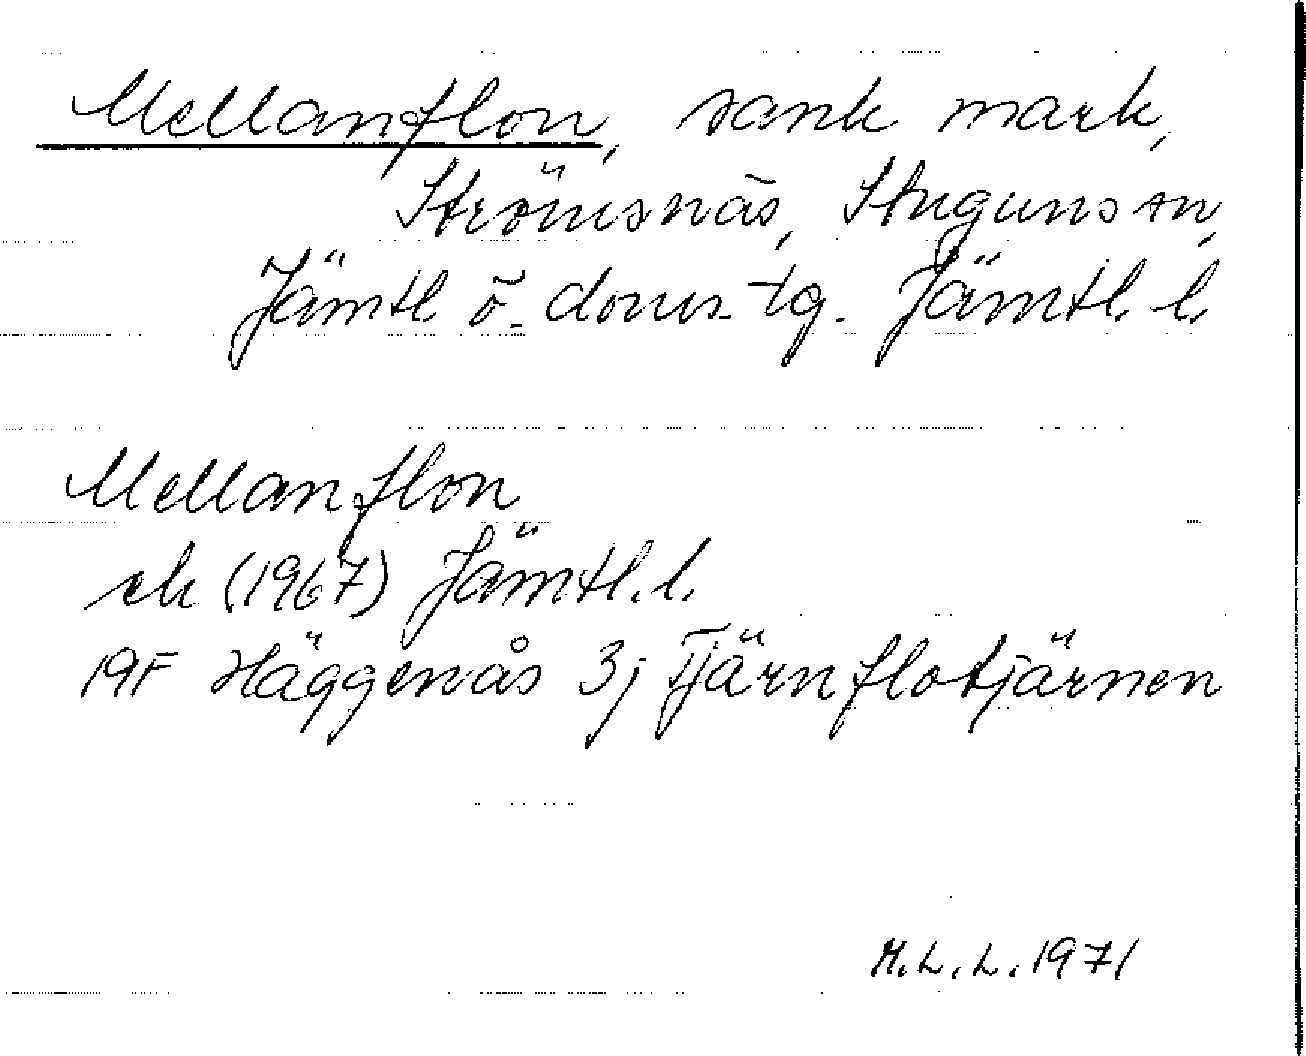 Mellanflon, sank mark,
Strömsnäs, Stuguns sn,
Jämtl ö. doms. tg. Jämtl. l.
Mellanflon
ek (1967) Jämtl. l.
19F Häggenås 3j Tjärnflotjärnen
M.L.L. 1971